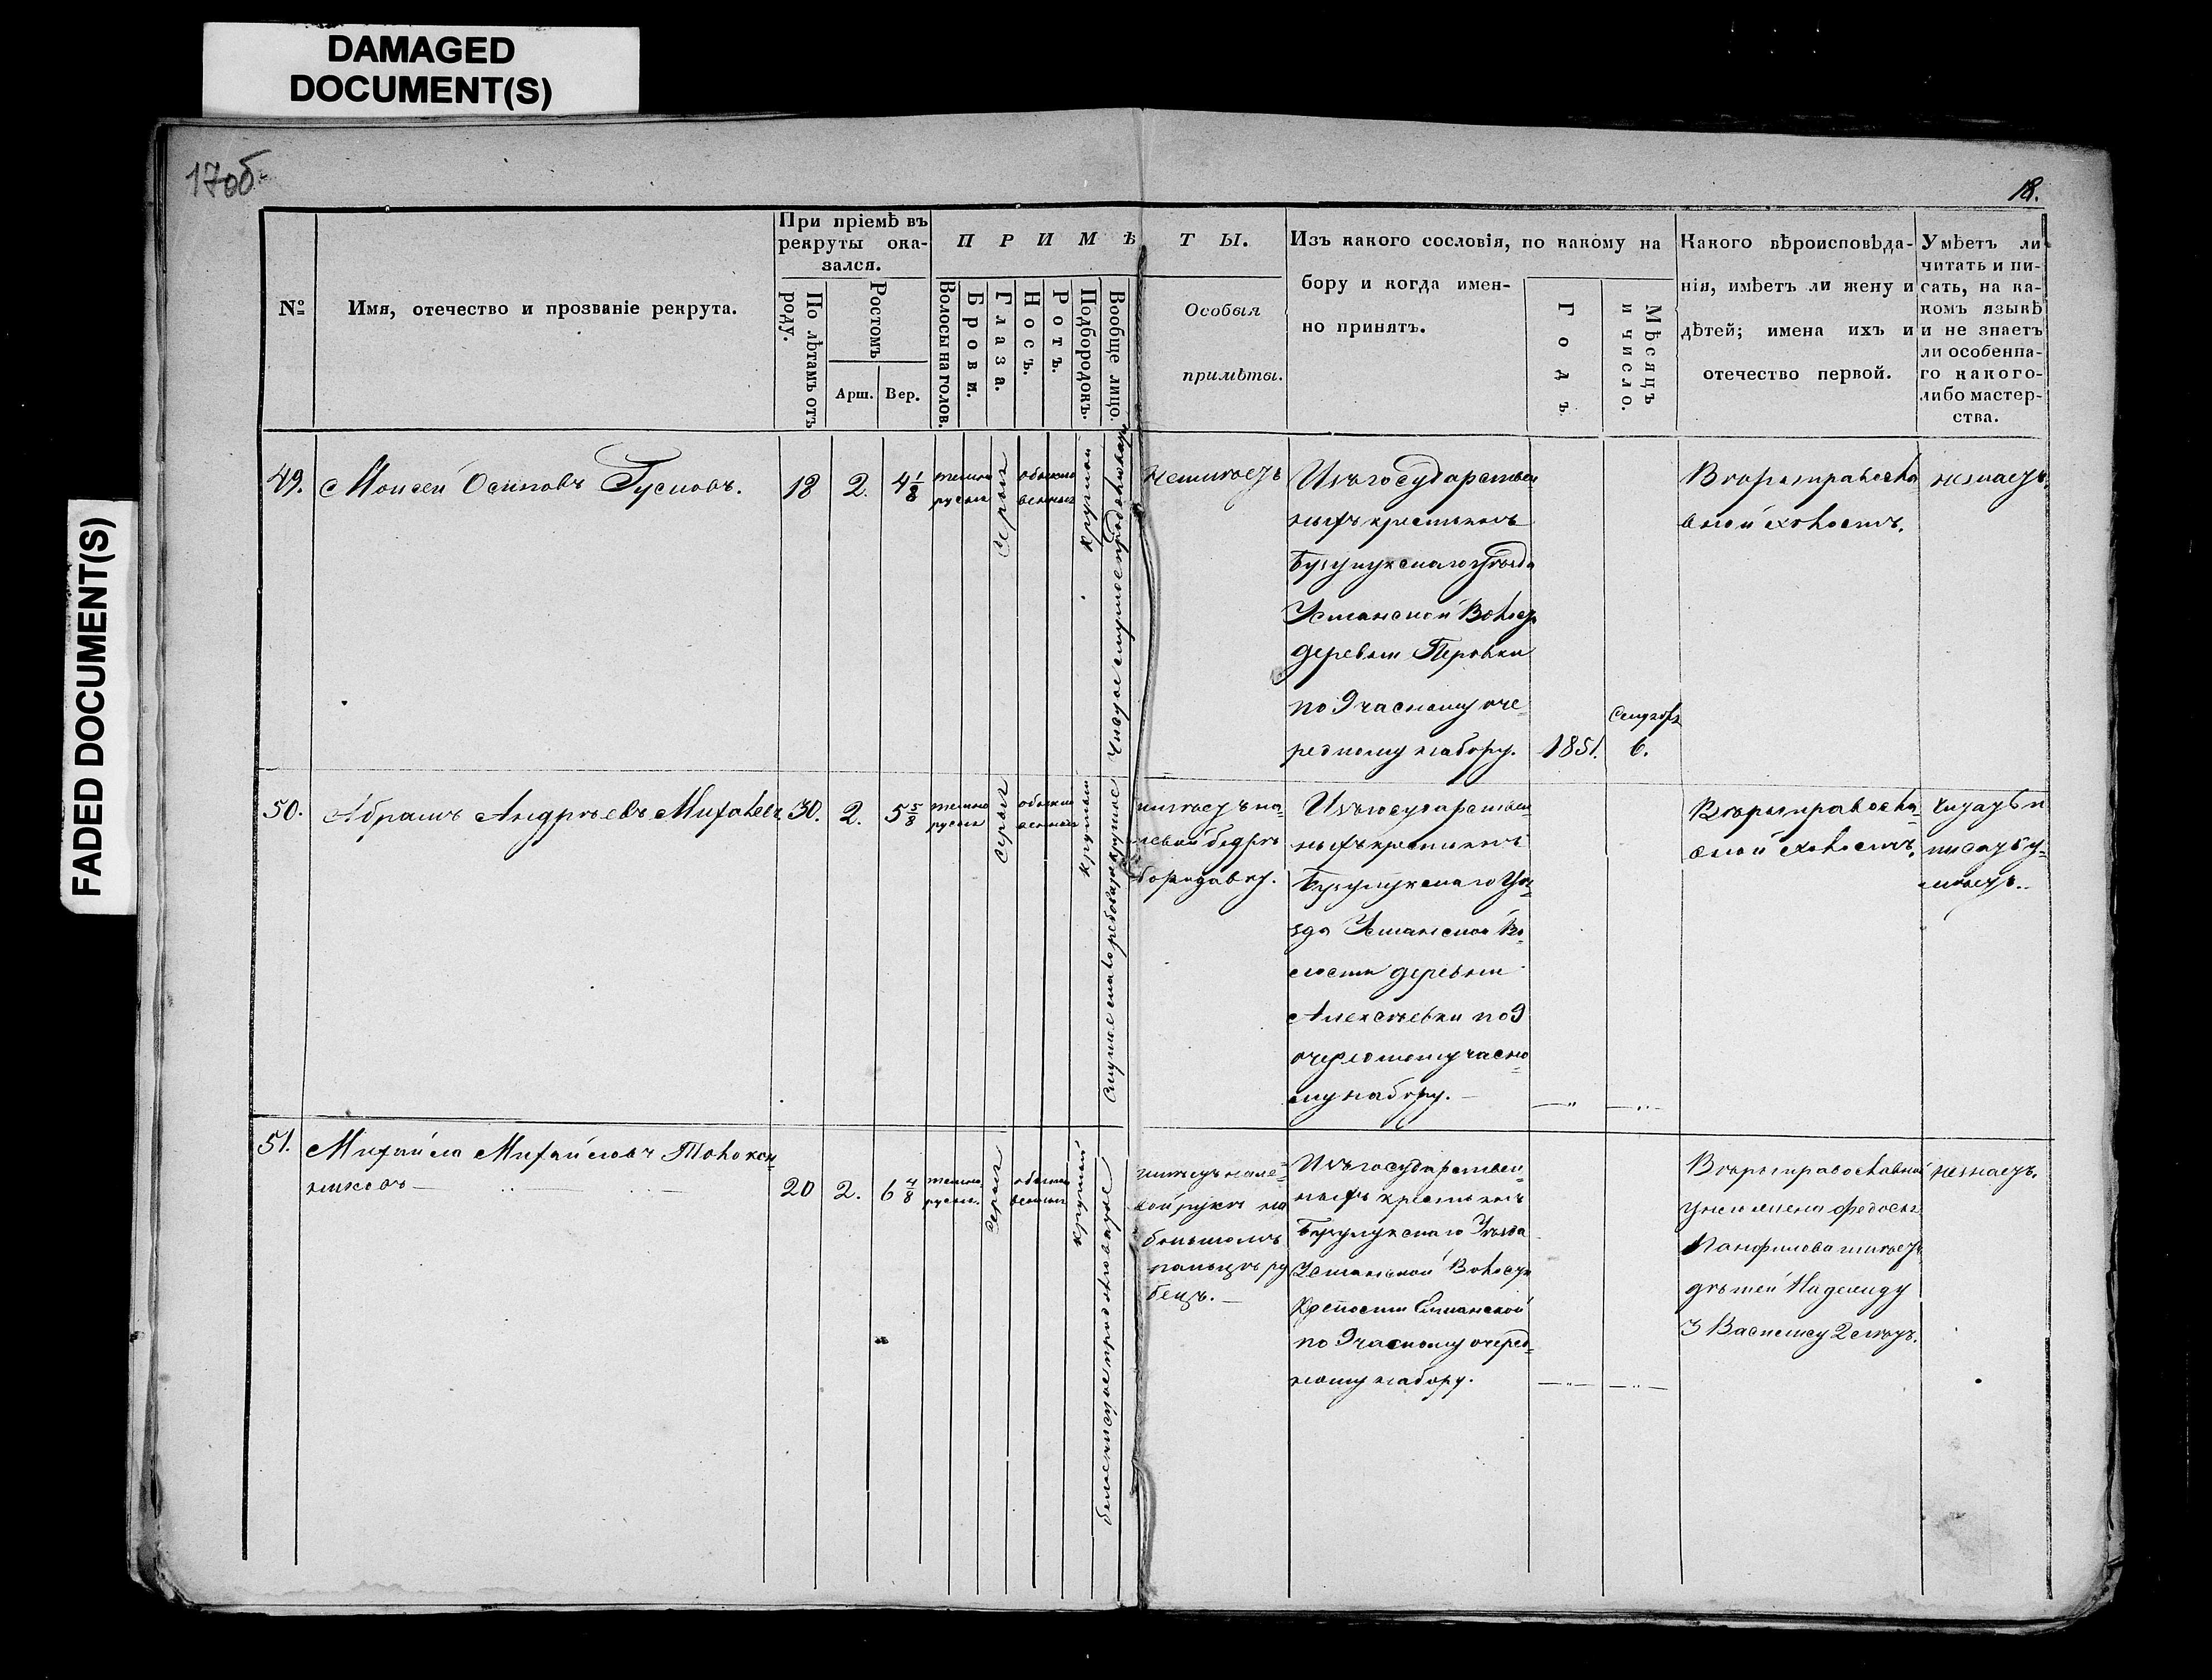 DAMAGED
DOCUMENT(S)
FADED DOCUMENT(S)
17об.
18.
№
Имя, отечество и прозваніе рекрута.
При пріемѣ въ
рекруты ока-
зался.
По лѣтамъ отъ
роду.
Ростомъ
Арш.
Вер.
ПРИМѢТЫ.
Волосы на голов.
Брови.
Глаза.
Носъ.
Ротъ.
Подбородокъ.
Вообще лицо.
Особыя
примѣты.
Изъ какого сословія, по какому на
бору и когда имен-
но принятъ.
Годъ.
Мѣсяцъ
и число.
Какого вѣроисповѣда-
нія, имѣетъ ли жену и
дѣтей; имена ихъ и
отечество первой.
Умѣетъ ли
читать и пи-
сать, на ка-
комъ языкѣ
и не знаетъ
ли особенна-
го какого-
либо мастер-
ства.
49.
Моисей Осиповъ Гусновъ.
18
2.
4 1/8
темно
русые
Серые
обыкно
венные
круглой
Чистое смуглое продолговат
Неимѣетъ
Изъ государствен
ныхъ крестьянъ
Бузулукскаго уѣзда
Усманской Волост
деревни Перовки
по 9 часному оче-
редному набору.
1851.
Сентября
6.
Вѣры правосла
вной холостъ.
незнаетъ.
50.
Абрамъ Андрѣевъ Михалевъ
30.
2.
5 5/8
темно
русые
Серые
обыкно
венные
круглый
Смуглое рябоватое круглое
имѣетъ на
левой бедрѣ
бородавку.
Изъ государствен
ныхъ крестьянъ
Бузулукскаго Уѣ-
зда Усманской Во-
лости деревни
Алексѣевки по 9
очередному часно
му набору.
Вѣры правосла
вной холостъ.
Читать и
писать у-
мѣетъ.
51.
Михайла Михайловъ Толокон-
никовъ
20
2.
6 4/8
темно
русые.
Серые
обыкно
венные
круглый
белое чистое продолговатое
имѣетъ на ле-
вой рукѣ на
большомъ
пальцѣ ру
бецъ.
Изъ государствен
ныхъ крестьянъ
Бузулукскаго Уѣзда
Усманской Волости
Крепости Елшанской
по 9 часному очеред-
ному набору.
Вѣры православной
у него жена Федосья
Панфилова имѣетъ
дѣтей Надежду
3 Василису 2 лѣтъ.
незнаетъ.